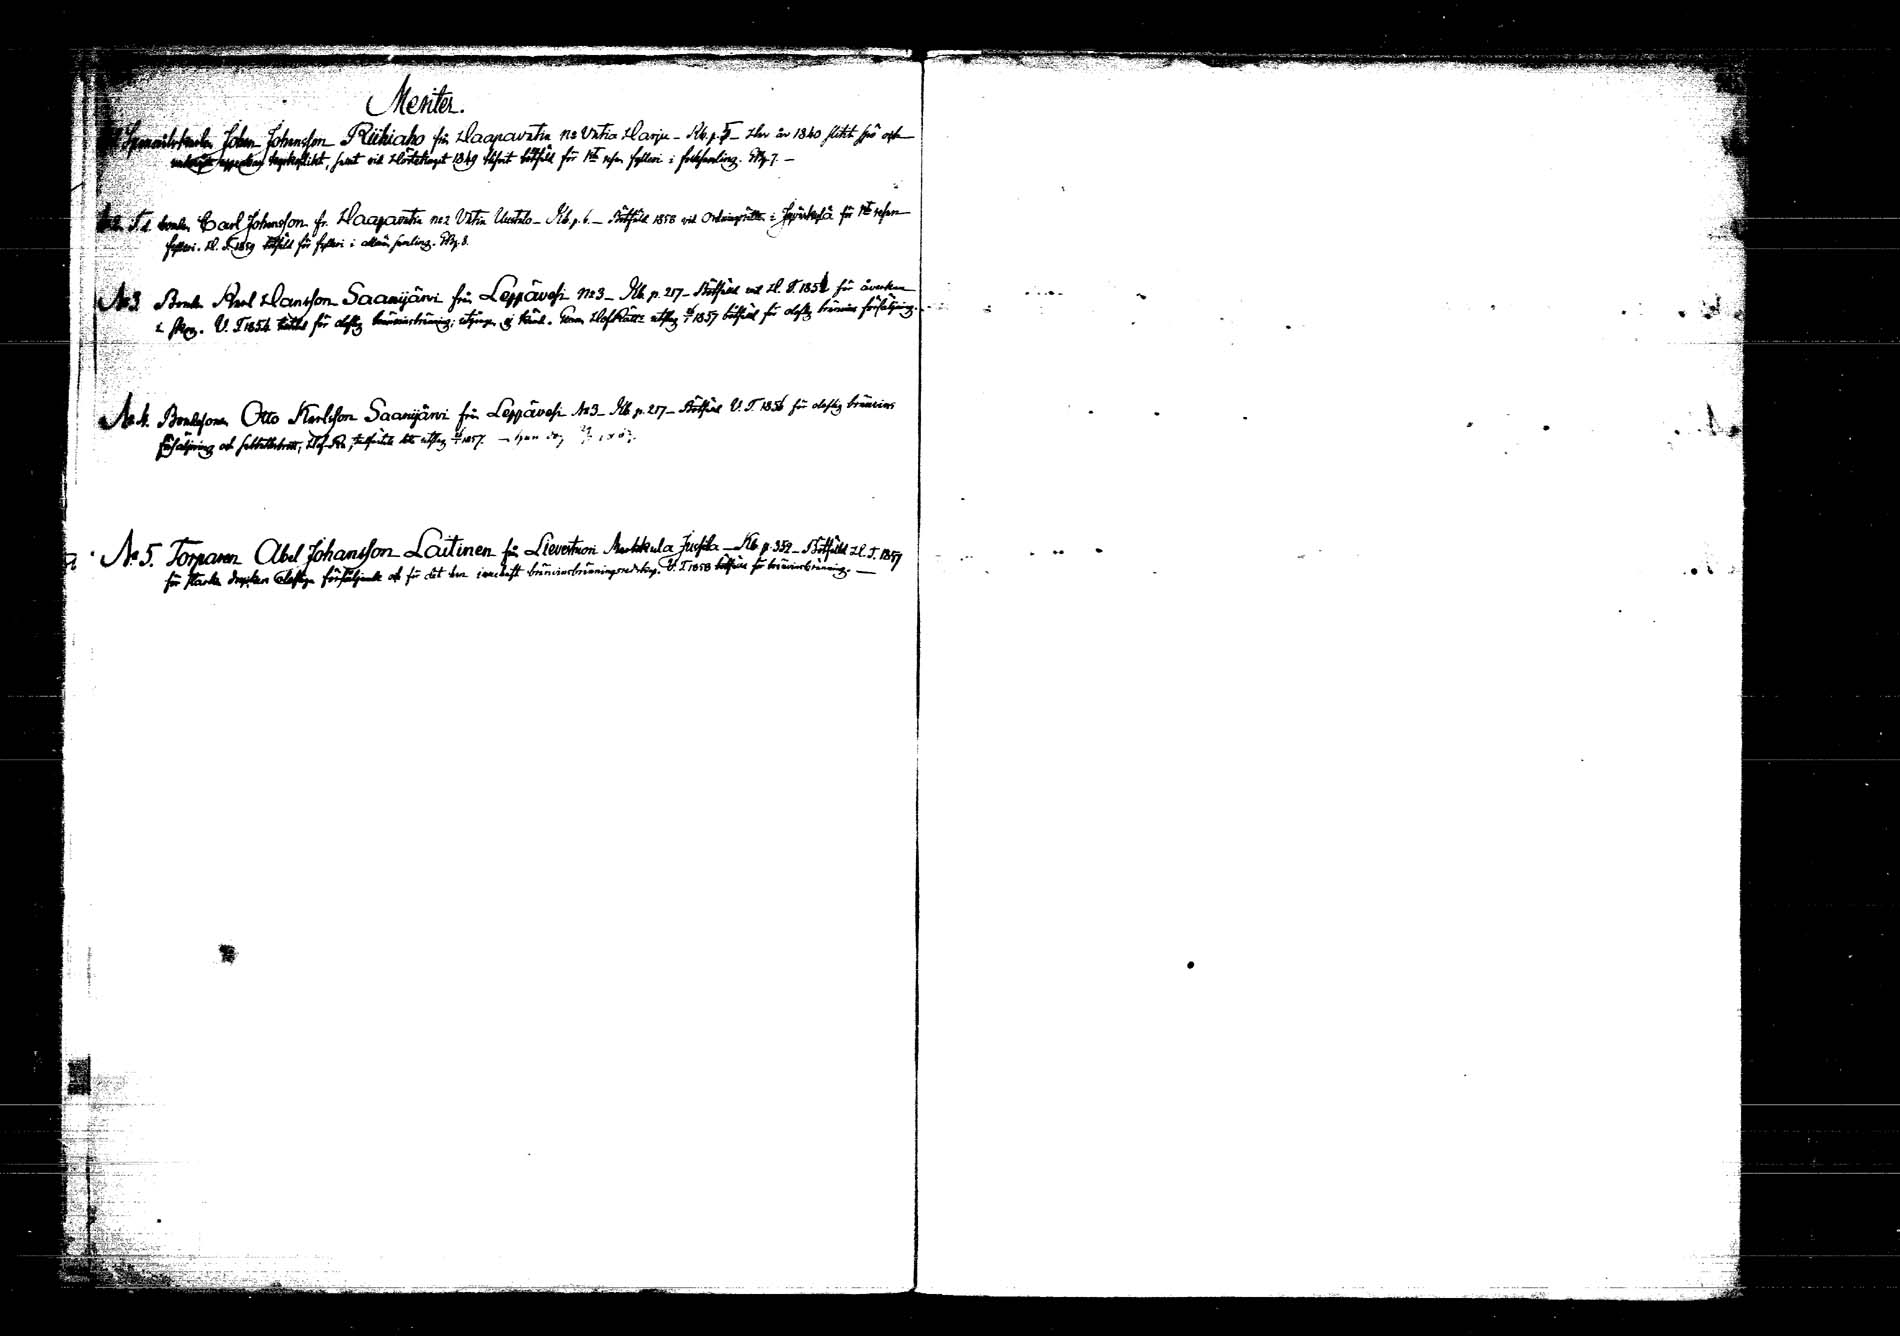 Meriter.
Johan Johansson Riihiaho från Haapavatia No 2 Vatia Harju – Kb. p. 5 – Har år 1840 slitit spö och
samt vid Hösttinget 1849 blifvit bötfäld för 1sta resan fylleri i folksamling.
F. d. bonden Carl Johansson fr. Haapavatia No 2 Vatia Uustalo – Kb. p. 6. – Bötfäld 1858 vid Ordningsrätten i Jyväskylä för 1sta resan
fylleri. H. T. 1859 bötfäld för fylleri i allmän samling.
No 3 Bonden Karl Hansson Saarijärvi från Leppävesi No 3 – Kb. p. 217 – Bötfäld vid H. T. 185 för åverkan
å skog. V. T. 1854 för olaflig bränvinsbränning; utgången ej känd. Genom HofRätts utslag 1857 bötfäld för olaflig bränvins försäljning.
No 4. Bondesonen Otto Karlsson Saarijärvi från Leppävesi No 3 – Kb. p. 217 – Bötfäld V. T. 1856 för olaflig bränvins
försäljning och sabbatsbrott, utslag 1857.
No 5. Torparen Abel Johansson Laitinen från Lievestuori Jussila – Kb. p. 352 – Bötfäld H. T. 1857
för starka dryckers olaflige försäljande och för det han innehaft bränvinsbränningsredskap. V. T. 1858 bötfäld för bränvinsbränning. –